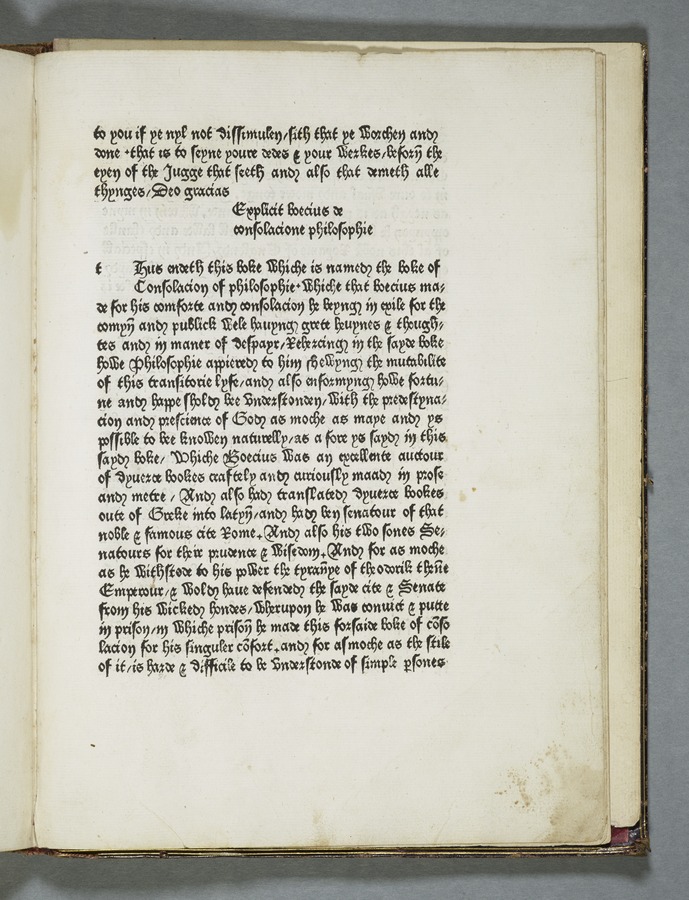 to you if ye nyl not dissimulen/sith that ye worchen and
done ·that is to seyne youre dedes & your werkes/beforn the
eyen of the Jugge that seeth and also that demeth alle
thynges/Deo gracias
Explicit boecius de
consolacione philosophie
t Hus endeth this boke whiche is named the boke of
Consolacion of philosophie· whiche that boecius ma-
de for his comforte and consolacion he beyng in exile for the
comyn and publick wele hauyng grete heuynes & though-
tes and in maner of despayr/Rehercing in the sayde boke
howe Philosophie appiered to him shewyng the mutabilite
of this transitorie lyfe/and also enformyng howe fortu-
ne and happe shold bee vnderstonden/with the predestyna-
cion and prescience of God as moche as maye and ys
possible to bee knowen naturelly/as a fore ys sayd in this
sayd boke/ Whiche Boecius was an excellente auctour
of dyuerce bookes craftely and curiously maad in prose
and metre / And also had translated dyuerce bookes
oute of Greke into latyn̄/and had ben senatour of that
noble & famous cite Rome. And also his two sones Se-
natours for their prudence & wisedom. And for as moche
as he withstode to his power the tyran̄ye of theodorik then̄e
Emperour/& wold haue defended the sayde cite & Senate
from his wicked hondes/wherupon he was conuict & putte
in prison/in whiche prison he made this forsaide boke of cōso
lacion for his singuler cōfort. and for asmoche as the stile
of it/is harde & difficile to be vnderstonde of simple ꝑsones